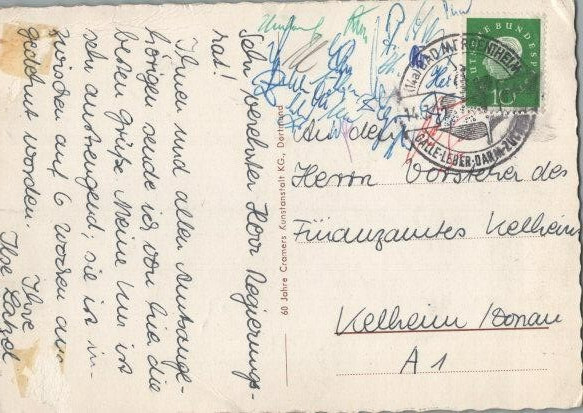 Sehr verehrter Herr Regierungs-
rat!
Ihnen und allen Amtsange-
hörigen sende ich von hier die
besten Grüße. Meine Kur ist
sehr anstrengend; sie ist in-
zwischen auf 6 Wochen aus-
gedehnt worden.
Ihre
Ilse
60 Jahre Cramers Kunstanstalt KG., Dortmund
BAD MERGENTHEIM
GALLE-LEBER-DARM-ZUCKER
DEUTSCHE BUNDESPOST
10
An den
Herrn Vorsteher des
Finanzamtes Kelheim
Kelheim/Donau
A 1